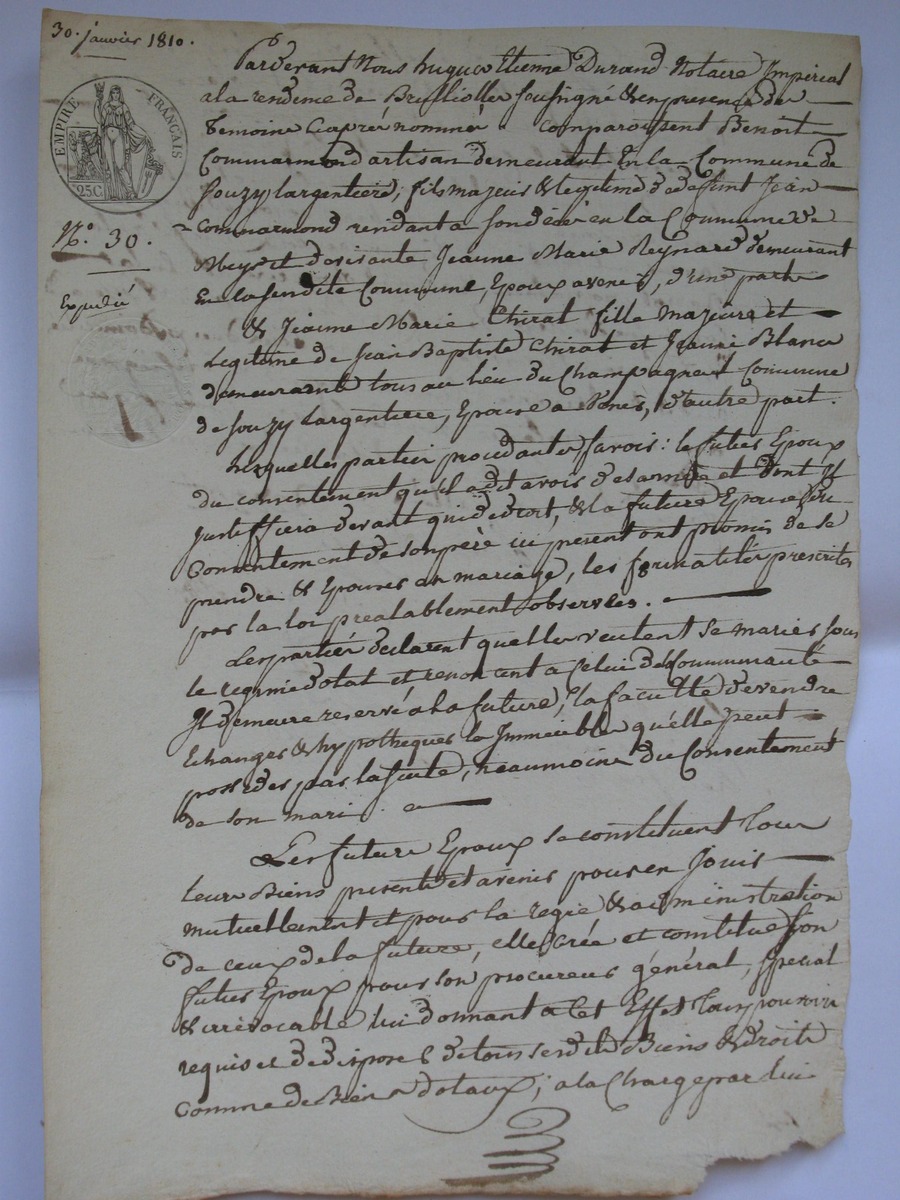 30. janvier 1810.
EMPIRE FRANÇAIS
25C
N.º 30.
Expédié
Pardevant Nous hugues Etienne Durand Notaire Imperial
a la rendeme de Brulliolle soussigné & en presence des
temoins Ciaprés nommés comparoissent Benoit
Commarmond artisan demeurant En la Commune de
Souzy Largentiere, fils majeur & legitime de defunt Jean
Commarmond rendant a fon en la Commune de
Meys et de Jeanne Marie Reynard demeurant
En la susdite Commune, Epoux avenir, d'une part
& Jeanne Marie Chirat fille majeure et
Legitime de Jean Baptiste Chirat et Jeanne Blanc
demeurants tous au lieu du Champagneux Commune
de Souzy Largentiere, Epouse a Venir, d'autre part.
Lesquelles parties procedantes savoir : le futur Epoux
du consentement qu'il a dit avoir de sa mère et dont il
justiffiera devant qui de droit, & la future Epouse du
Consentement de son père ici présent ont promis de se
prendre & Epouser en mariage, les formalités prescrites
par la loi préalablement observées.
Les parties déclarent quelles veulent se marier sous
le regime dotal et renoncent a Celui de Communauté
Il demeure reservé a la future, la faculté de vendre
Echanger & hypothequer les Immeubles qu'elle peut
posseder par la suite, neaumoins du Consentement
de son mari.
Les future Epoux se constituent tous
leurs Biens presents et avenir pour en Jouir
mutuellement et pour la regie & administration
de ceux de la future, elle crée et constitue son
futur Epoux pour son procureur général, special
& irrévocable lui donnant a Cet Effet tous pouvoir
requis et de disposer de tous ses dits Biens & droits
Comme de Biens dotaux ; a la Charge par lui